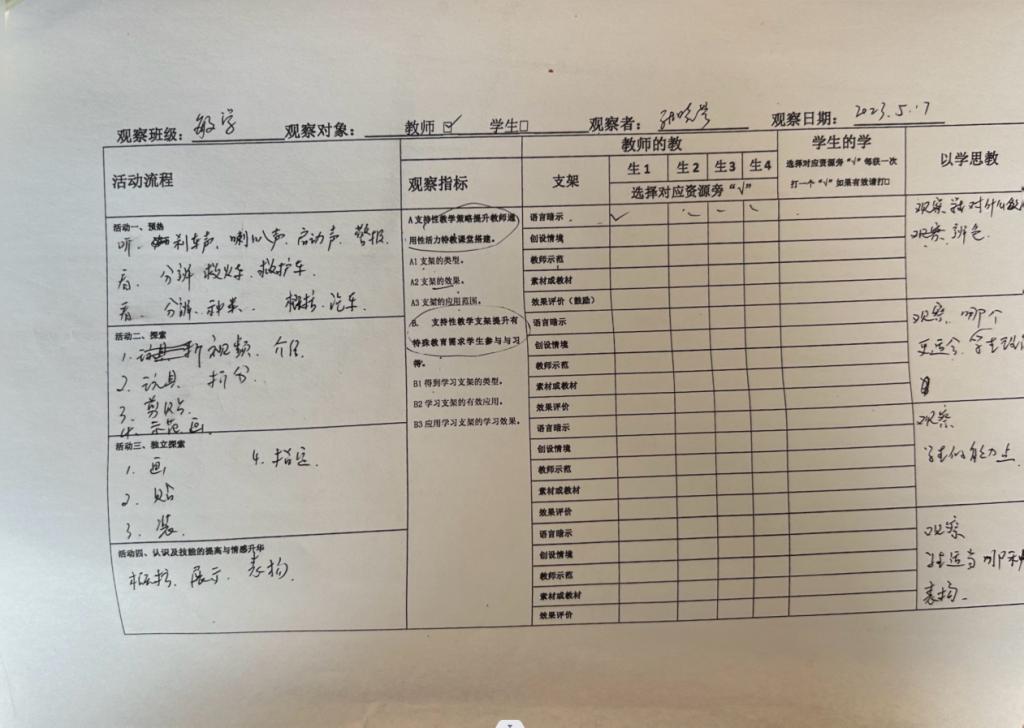 观察班级： 观察对象： 教师☑ 学生□ 观察者： 观察日期：2023.5.17
活动流程
观察指标
支架
教师的教
生1 生2 生3 生4
选择对应资源旁“√”
学生的学
选择对应资源旁“√”每获一次
打一个“√”如果有效请打□
以学思教
活动一、预热
听、刹车声、喇叭声、启动声、警报
看、分辨 救火车、救护车.
看、分辨、种类、概括、汽车.
活动二、探索
1. 拆 视频、介绍
2. 玩具 拆分.
3. 剪贴.
4. 示范画.
活动三、独立探索
1. 画 4. 指定.
2. 贴
3. 装.
活动四、认识及技能的提高与情感升华
概括、展示、表扬.
A 支持性教学策略提升教师通
用性活力特教课堂搭建。
A1 支架的类型。
A2 支架的效果。
A3 支架的应用范围。
B. 支持性教学支架提升有
特殊教育需求学生参与与习
得。
B1 得到学习支架的类型。
B2 学习支架的有效应用。
B3 应用学习支架的学习效果。
语言暗示 √ √ √ √
创设情境
教师示范
素材或教材
效果评价（鼓励）
语言暗示
创设情境
教师示范
素材或教材
效果评价
语言暗示
创设情境
教师示范
素材或教材
效果评价
语言暗示
创设情境
教师示范
素材或教材
效果评价
观察 对什么
观察
观察 哪个
更适合
观察
学生的能力上
观察
哪种
表扬.